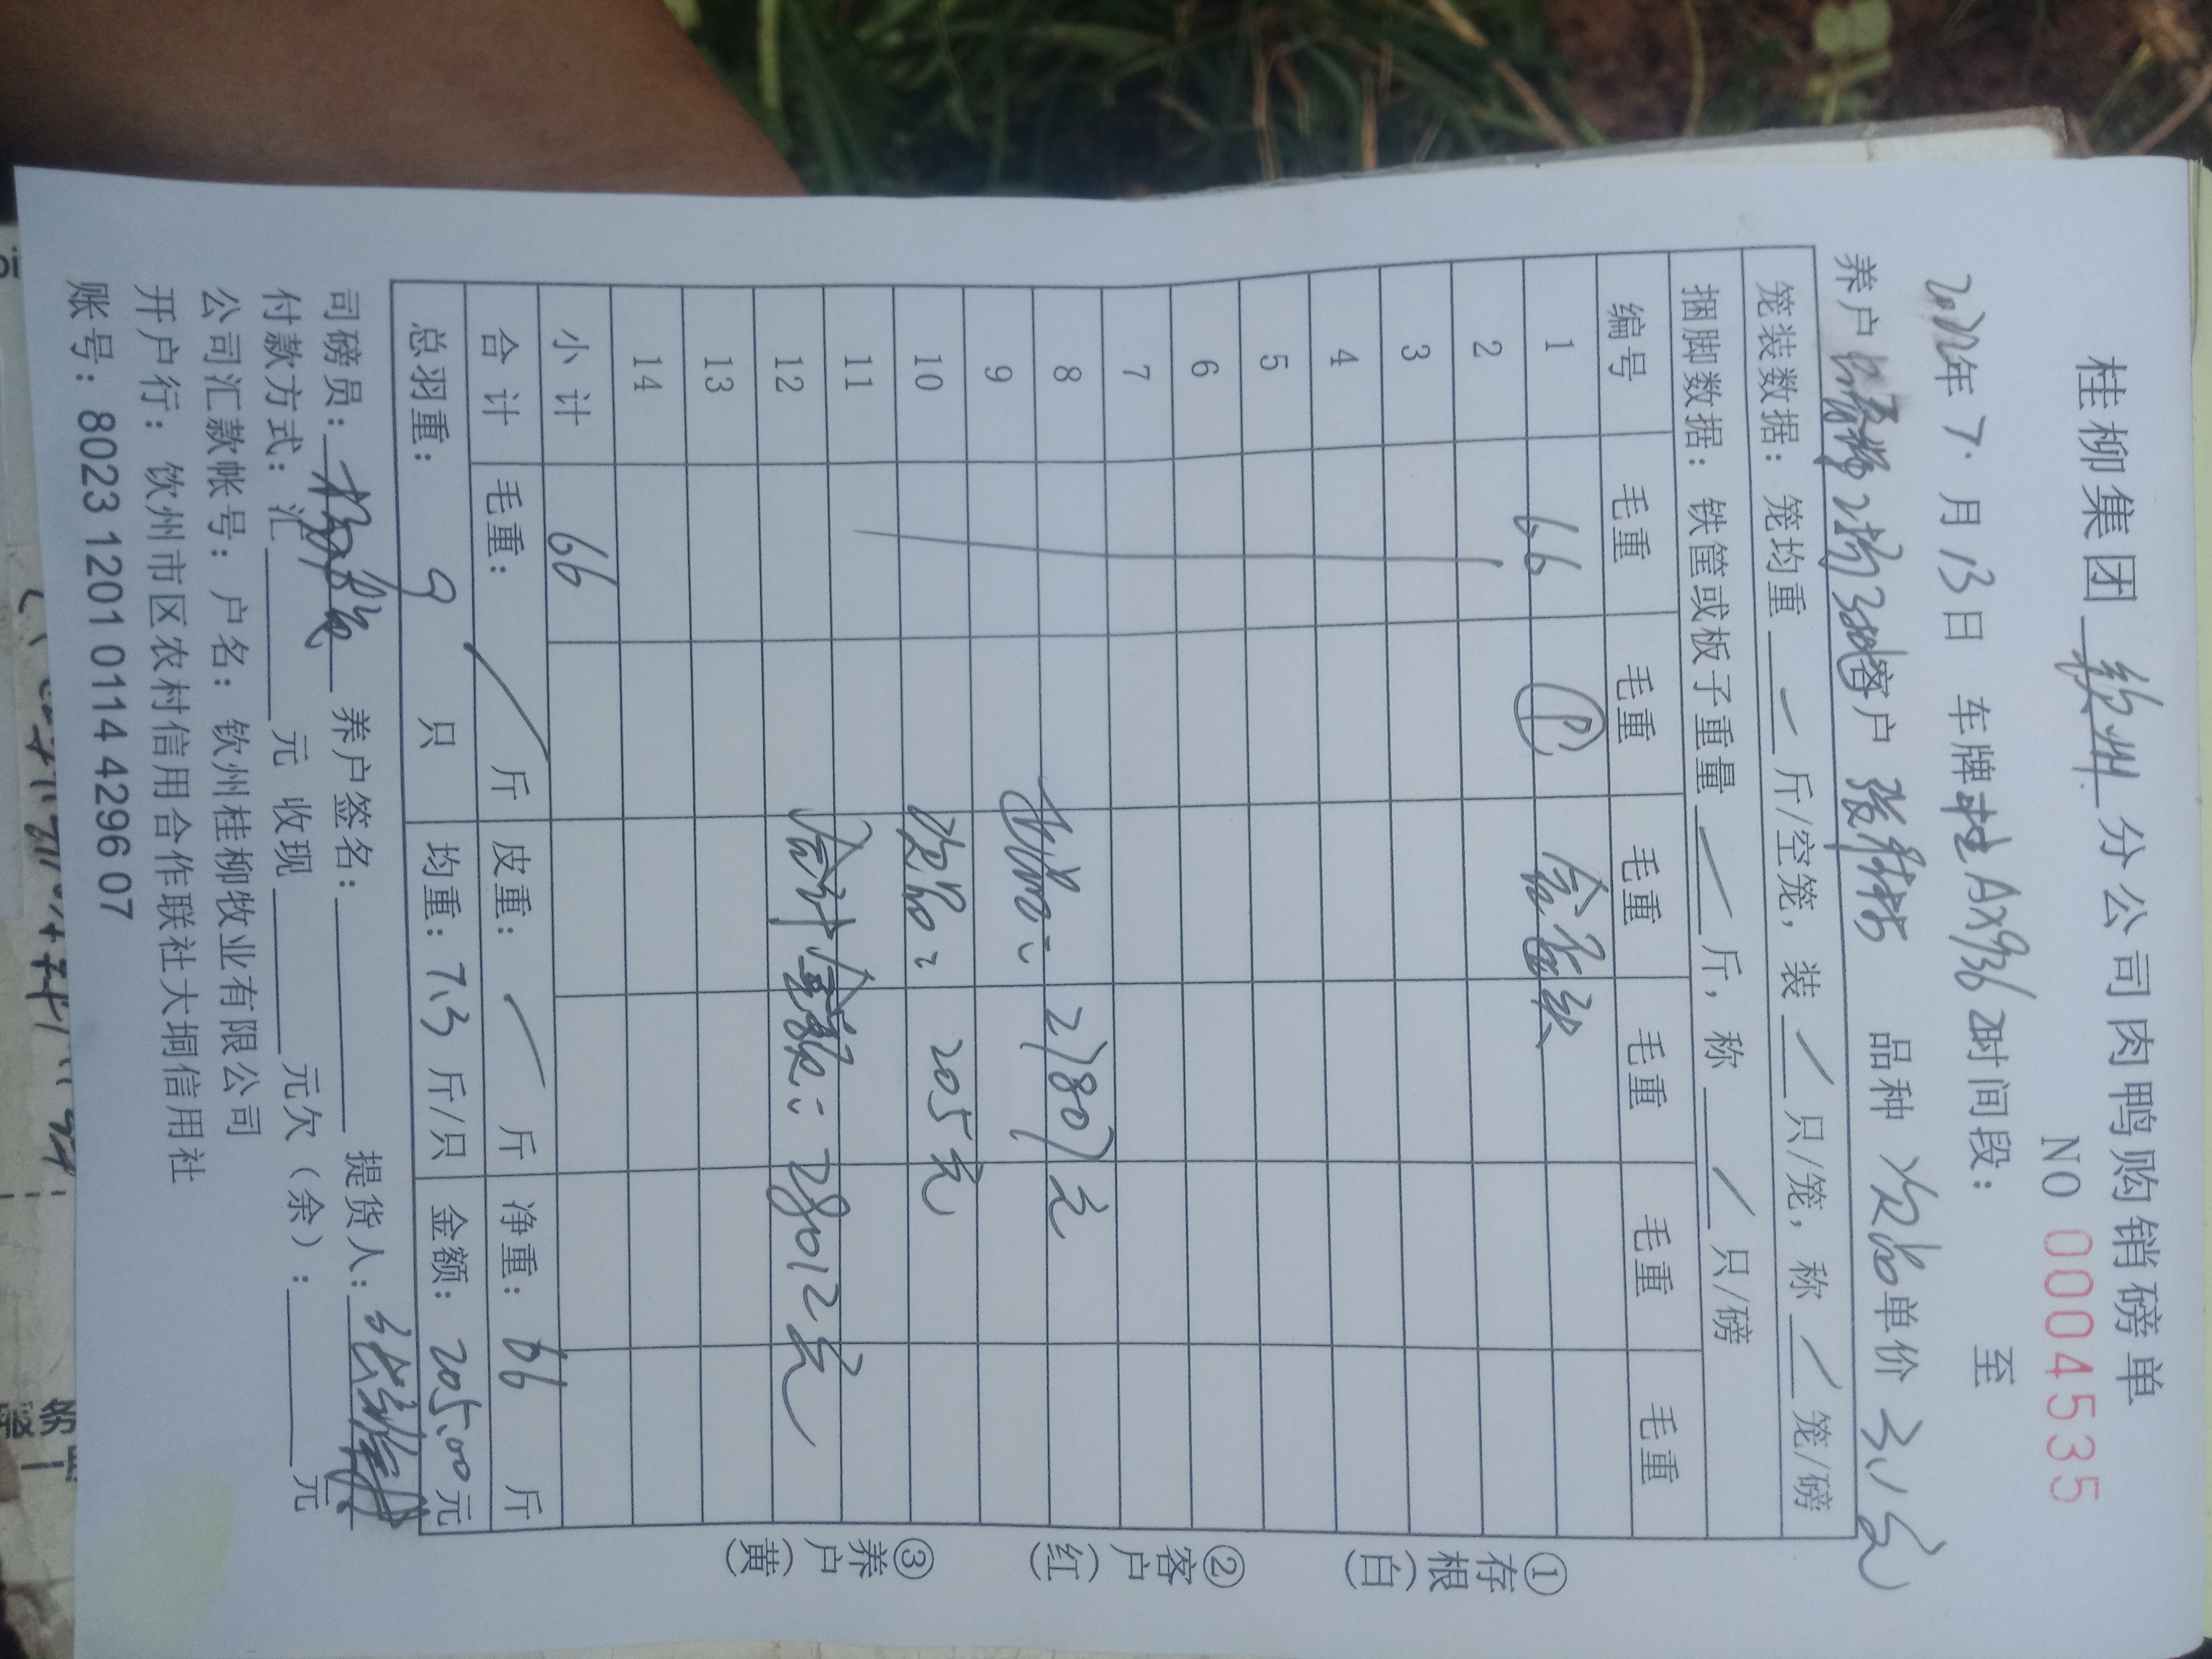 桂柳集团 钦州 分公司肉鸭购销磅单
NO 0004535
年 7 月 13 日 车牌 桂AX9362 时间段： 至
养户 客户 品种 单价 3.1元
笼装数据：笼均重 斤/空笼，装 只/笼，称 笼/磅
捆脚数据：铁筐或板子重量 斤，称 只/磅
编号 毛重 毛重 毛重 毛重 毛重 毛重
1 66 ①
2
3
4
5
6
7
8 27807元
9
10 205元
11
12 合计金额：28012元
13
14
小计 66
合计 毛重： 斤 皮重： 斤 净重：66 斤
总羽重： 9 只 均重：7.3 斤/只 金额：205.00元
司磅员： 养户签名： 提货人：
付款方式：汇 元 收现 元欠（余）： 元
公司汇款帐号：户名：钦州桂柳牧业有限公司
开户行：钦州市区农村信用合作联社大垌信用社
账号：8023 1201 0114 4296 07
①存根（白）
②客户（红）
③养户（黄）